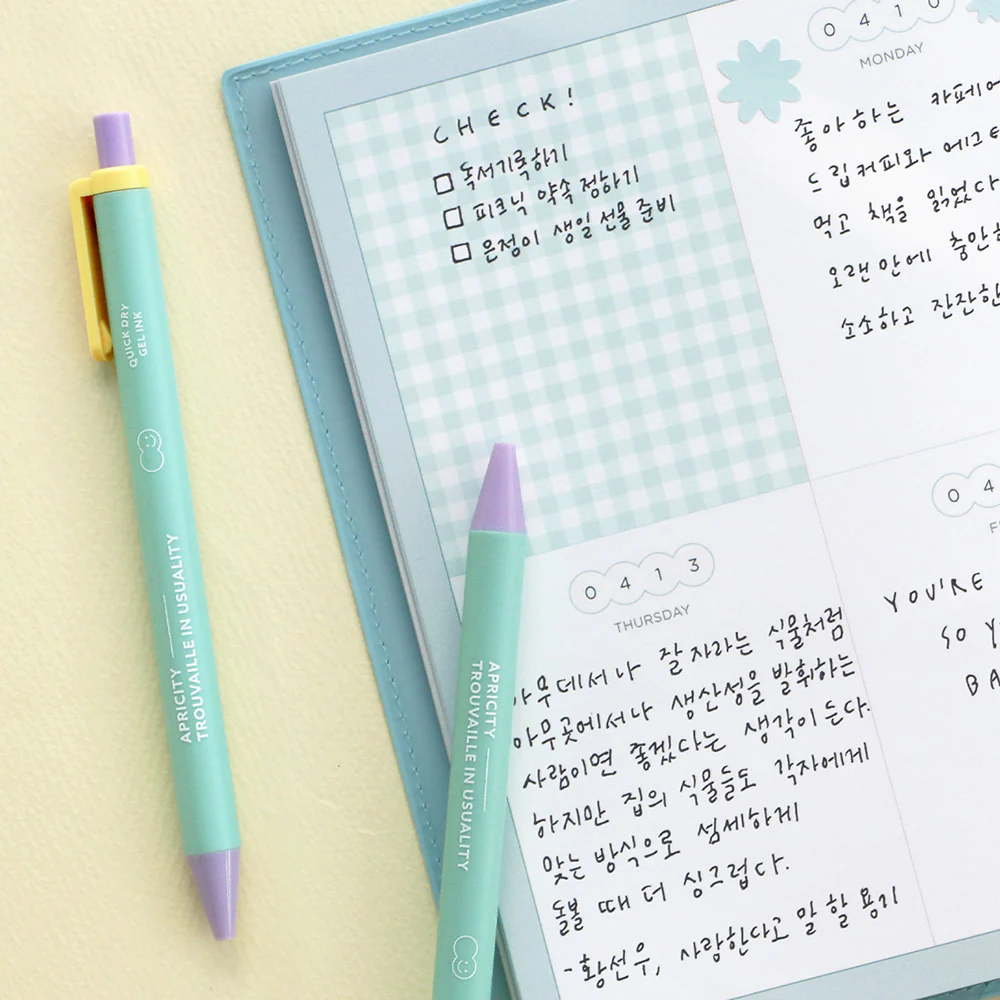 CHECK!
□ 독서기록하기
□ 피크닉 약속 정하기
□ 은정이 생일 선물 준비
0410
MONDAY
좋아하는 카페에
드립커피와 에그
먹고 책을 읽었다
오랜만에 충만
소소하고 잔잔한
0413
THURSDAY
아무데서나 잘 자라는 식물처럼
아무곳에서나 생산성을 발휘하는
사람이면 좋겠다는 생각이 든다.
하지만 집의 식물들도 각자에게
맞는 방식으로 섬세하게
돌볼 때 더 싱그럽다.
-황선우, 사랑한다고 말할 용기
04
YOU'RE
SO
BA
QUICK DRY
GEL INK
APRICITY
TROUVAILLE IN USUALITY
APRICITY
TROUVAILLE IN USUALITY